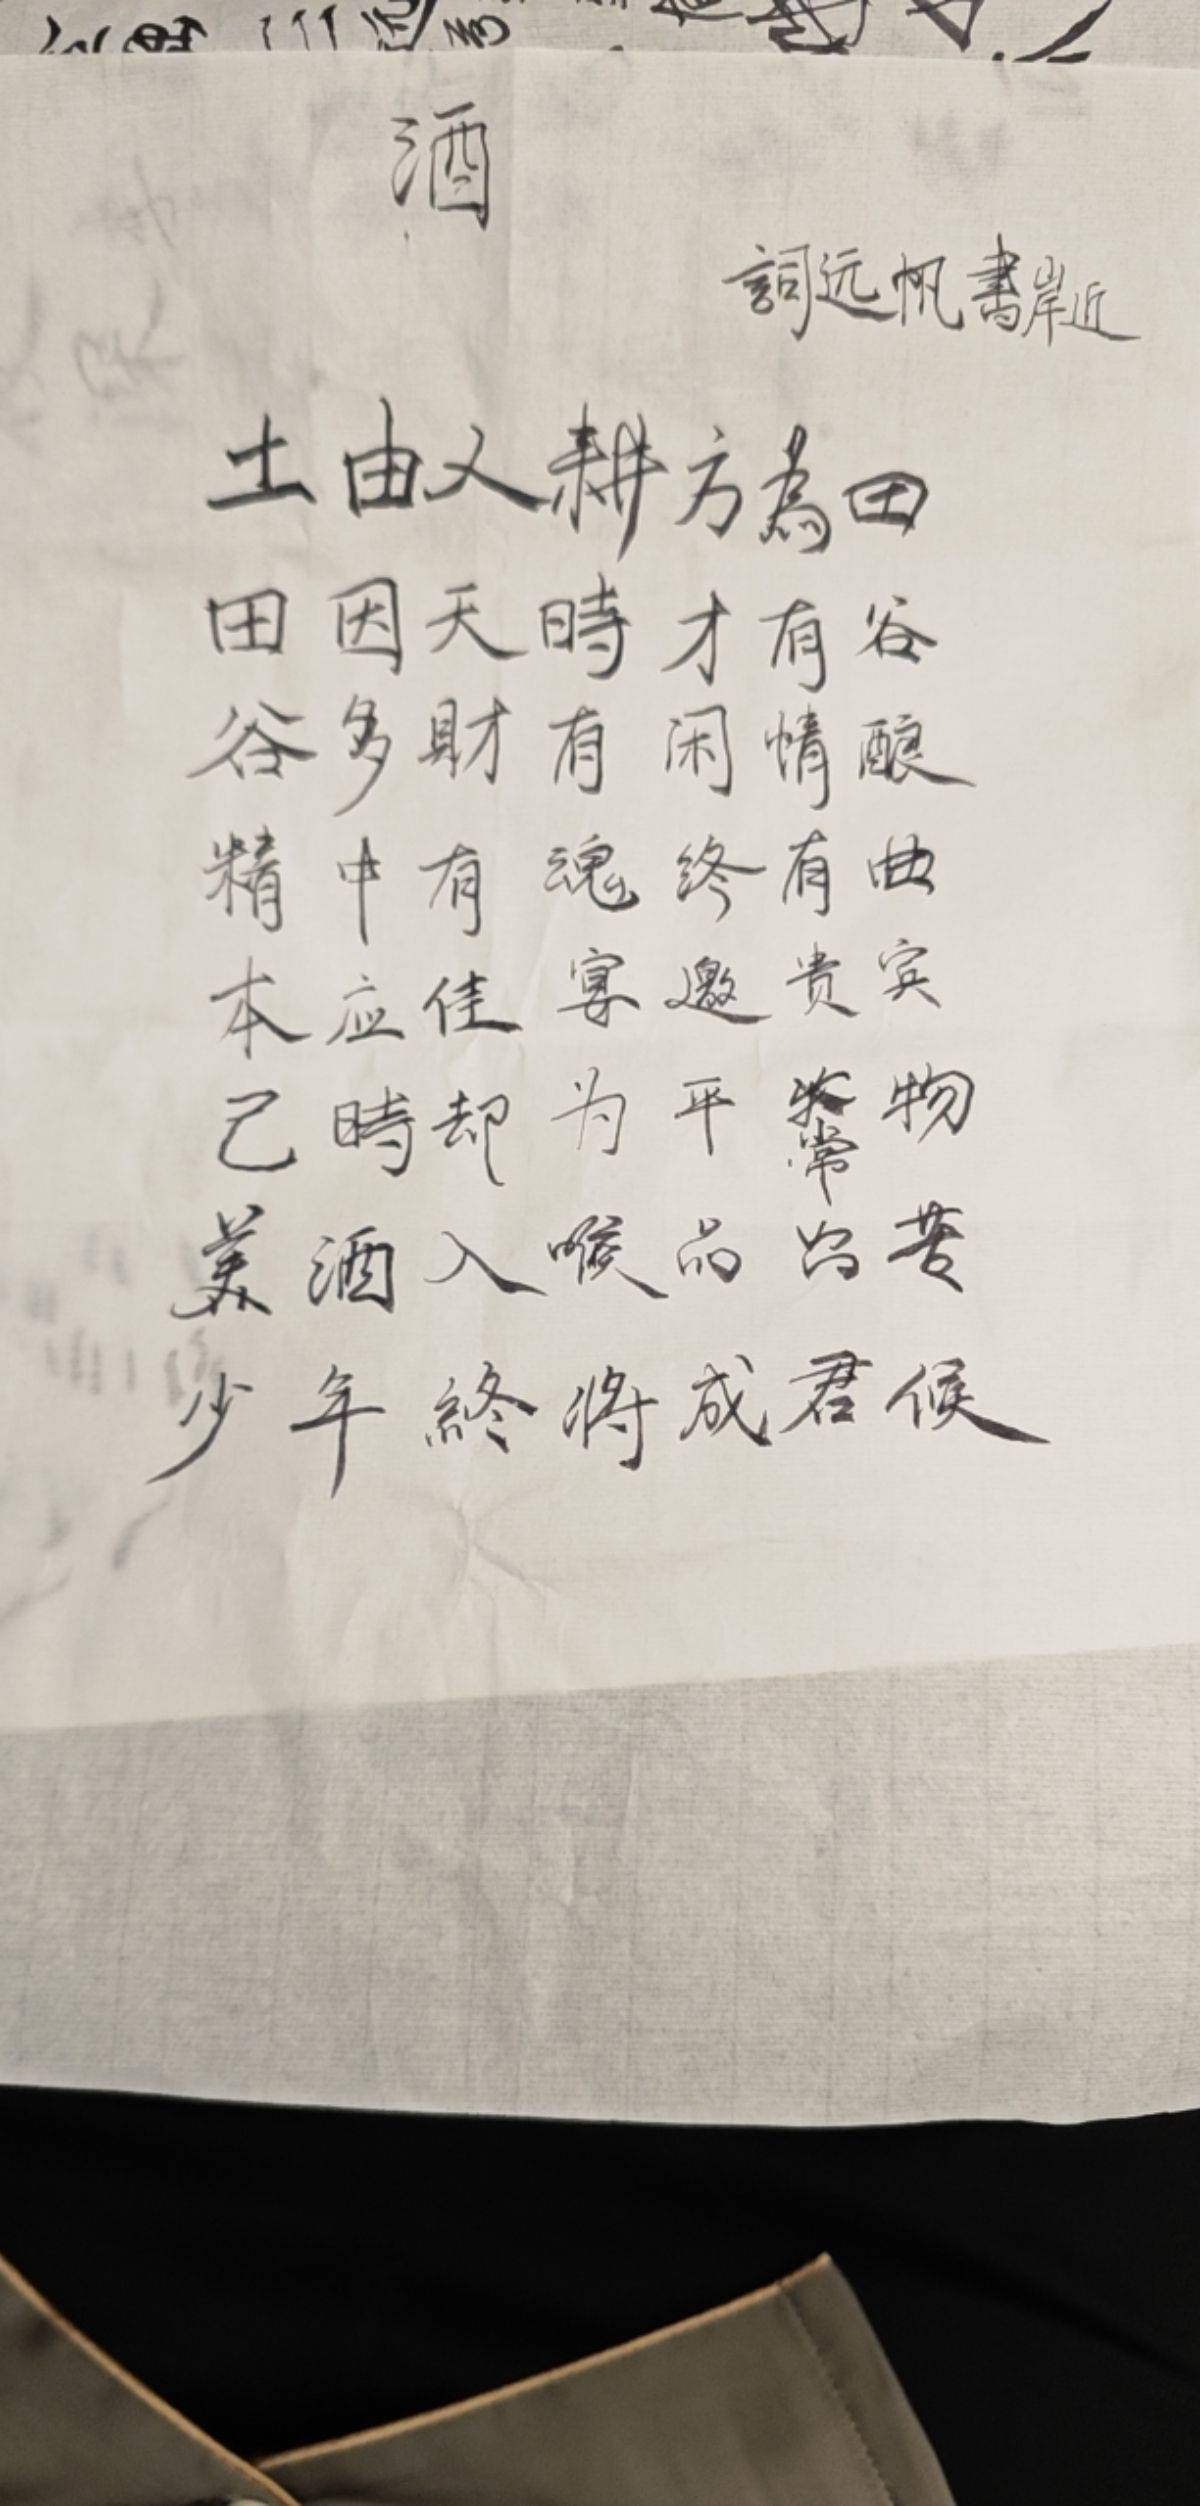 酒
詞远帆書岸近
土由人耕方為田
田因天時才有谷
谷多財有闲情酿
精中有魂终有曲
本应佳宴邀贵宾
己時却为平常物
美酒入喉品出苦
少年終将成君候